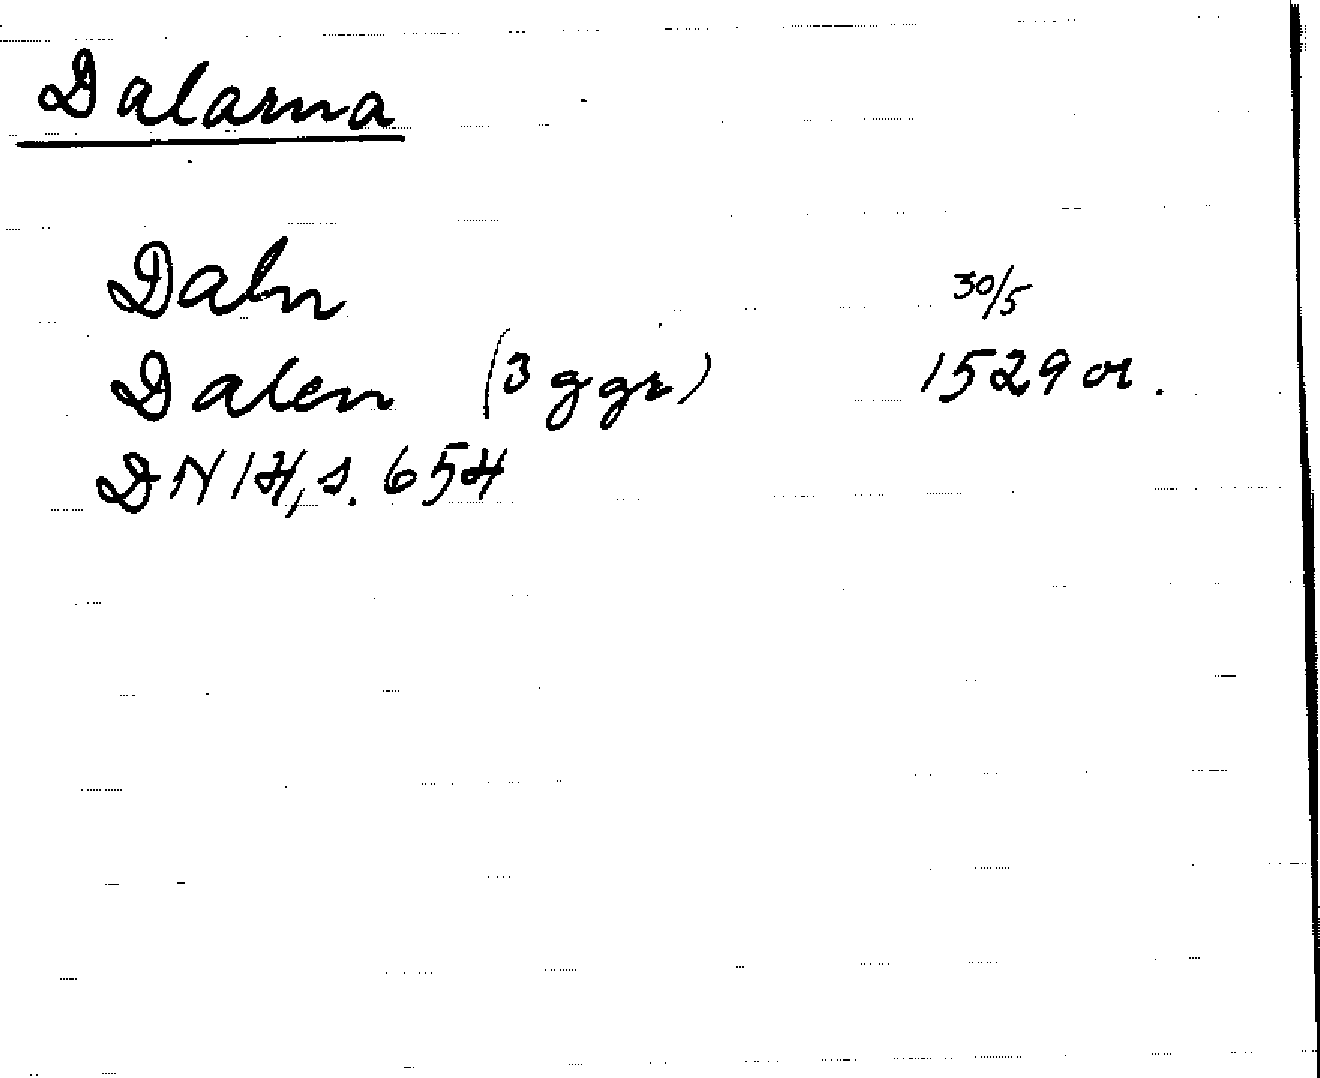 Dalarna
Daln 30/5
Dalen (3 ggr) 1529 or.
DN 14, s. 654